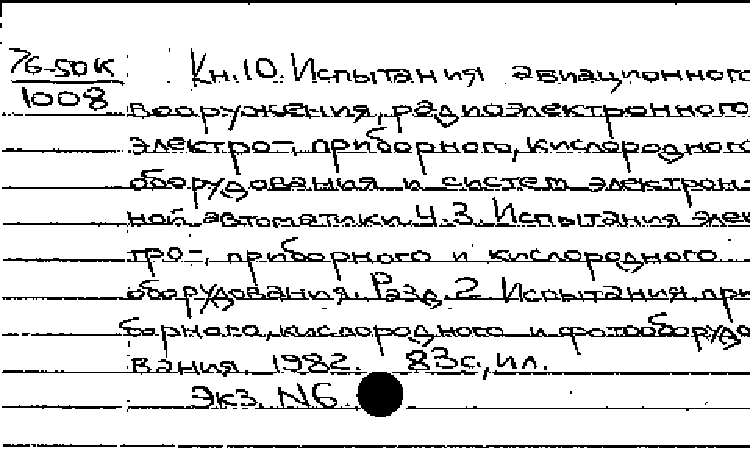 76-50К
1008
Кн.10. Испытания авиационного
вооружения, радиоэлектронного
электро-, приборного, кислородного
оборудования и систем электрон-
ной автоматики. Ч.3. Испытания элек
тро-, приборного и кислородного
оборудования. Разд. 2 Испытания при
борного, кислородного и фотооборудо
вания. 1982. 83с., ил.
Экз. N6